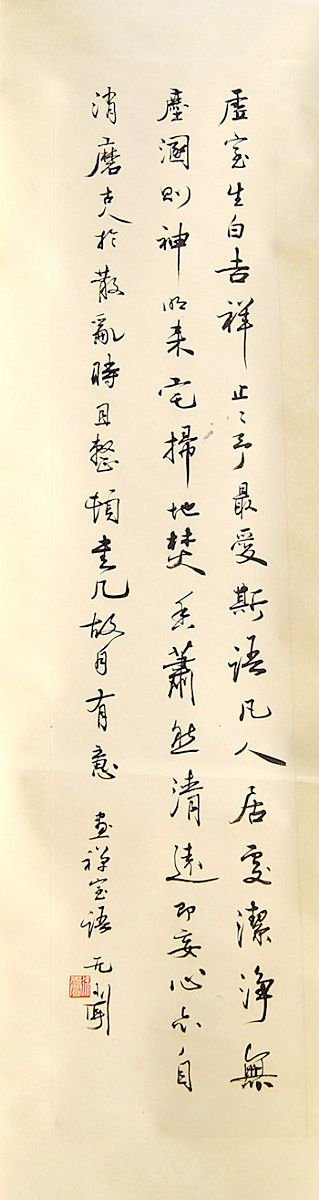 虛室生白吉祥止〻予最愛斯語凡人居處潔淨無
塵溷則神明来宅掃地焚香蕭然清遠即妄心亦自
消磨古人於散亂時且整頓書几故自有意
畫禅室語